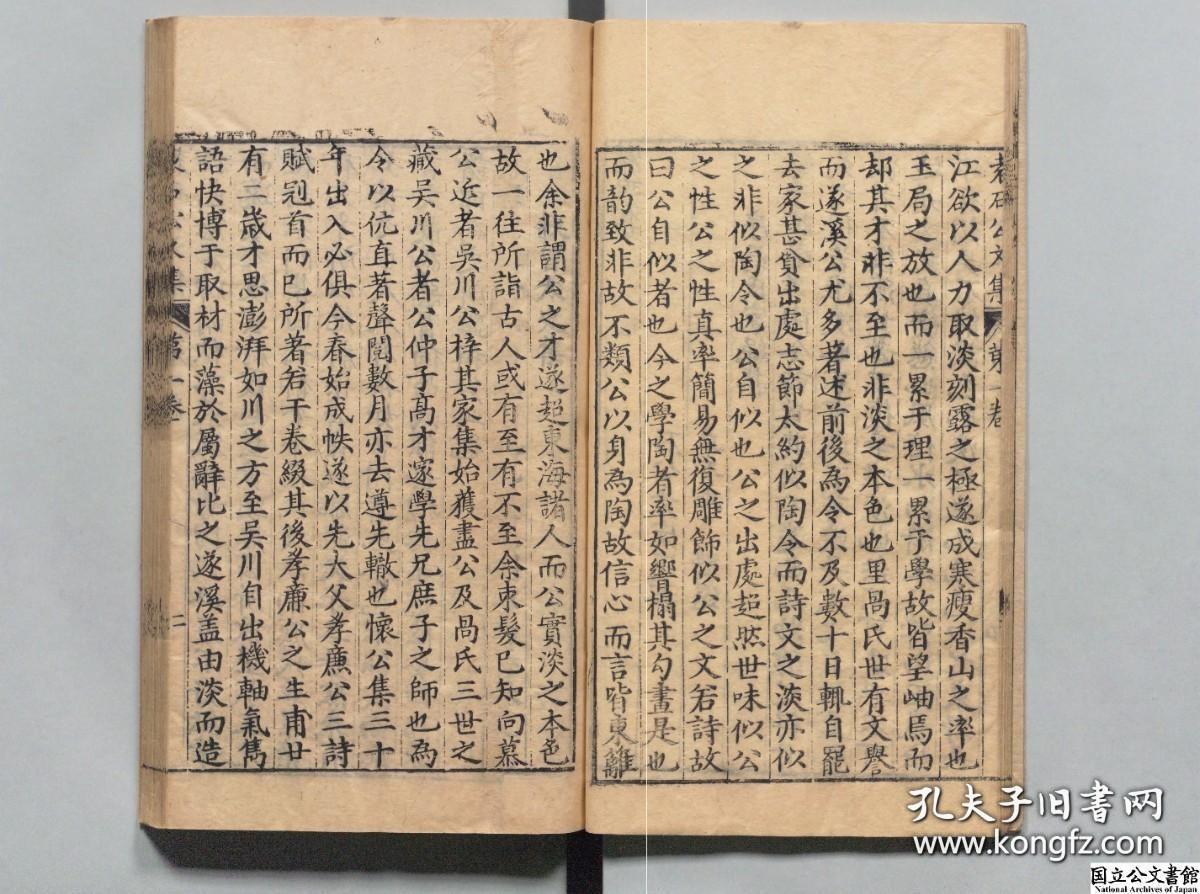 袁石公文集 第一卷
江欲以人力取淡刻露之極遂成寒瘦香山之率也
玉局之放也而一累于理一累于學故皆望岫焉而
却其才非不至也非淡之本色也里咼氏世有文譽
而遂溪公尤多著述前後為令不及數十日輒自罷
去家甚貧出處志節太約似陶令而詩文之淡亦似
之非似陶令也公自似也公之出處超然世味似公
之性公之性真率簡易無復雕飾似公之文若詩故
曰公自似者也今之學陶者率如響榻其勾畫是也
而韵致非故不類公以身為陶故信心而言皆東籬
也余非謂公之才遂超東海諸人而公實淡之本色
故一往所詣古人或有至有不至余束髮已知向慕
公近者吳川公梓其家集始獲盡公及咼氏三世之
藏吳川公者公仲子高才邃學先兄庶子之師也為
令以伉直著聲閱數月亦去遵先轍也懷公集三十
年出入必俱今春始成帙遂以先大父孝廉公三詩
賦冠首而已所著若干卷綴其後孝廉公之生甫廿
有二歲才思澎湃如川之方至吳川自出機軸氣雋
語快博于取材而藻於屬辭比之遂溪盖由淡而造
袁石公文集 第一卷 二
孔夫子旧书网
www.kongfz.com
国立公文書館
National Archives of Japan